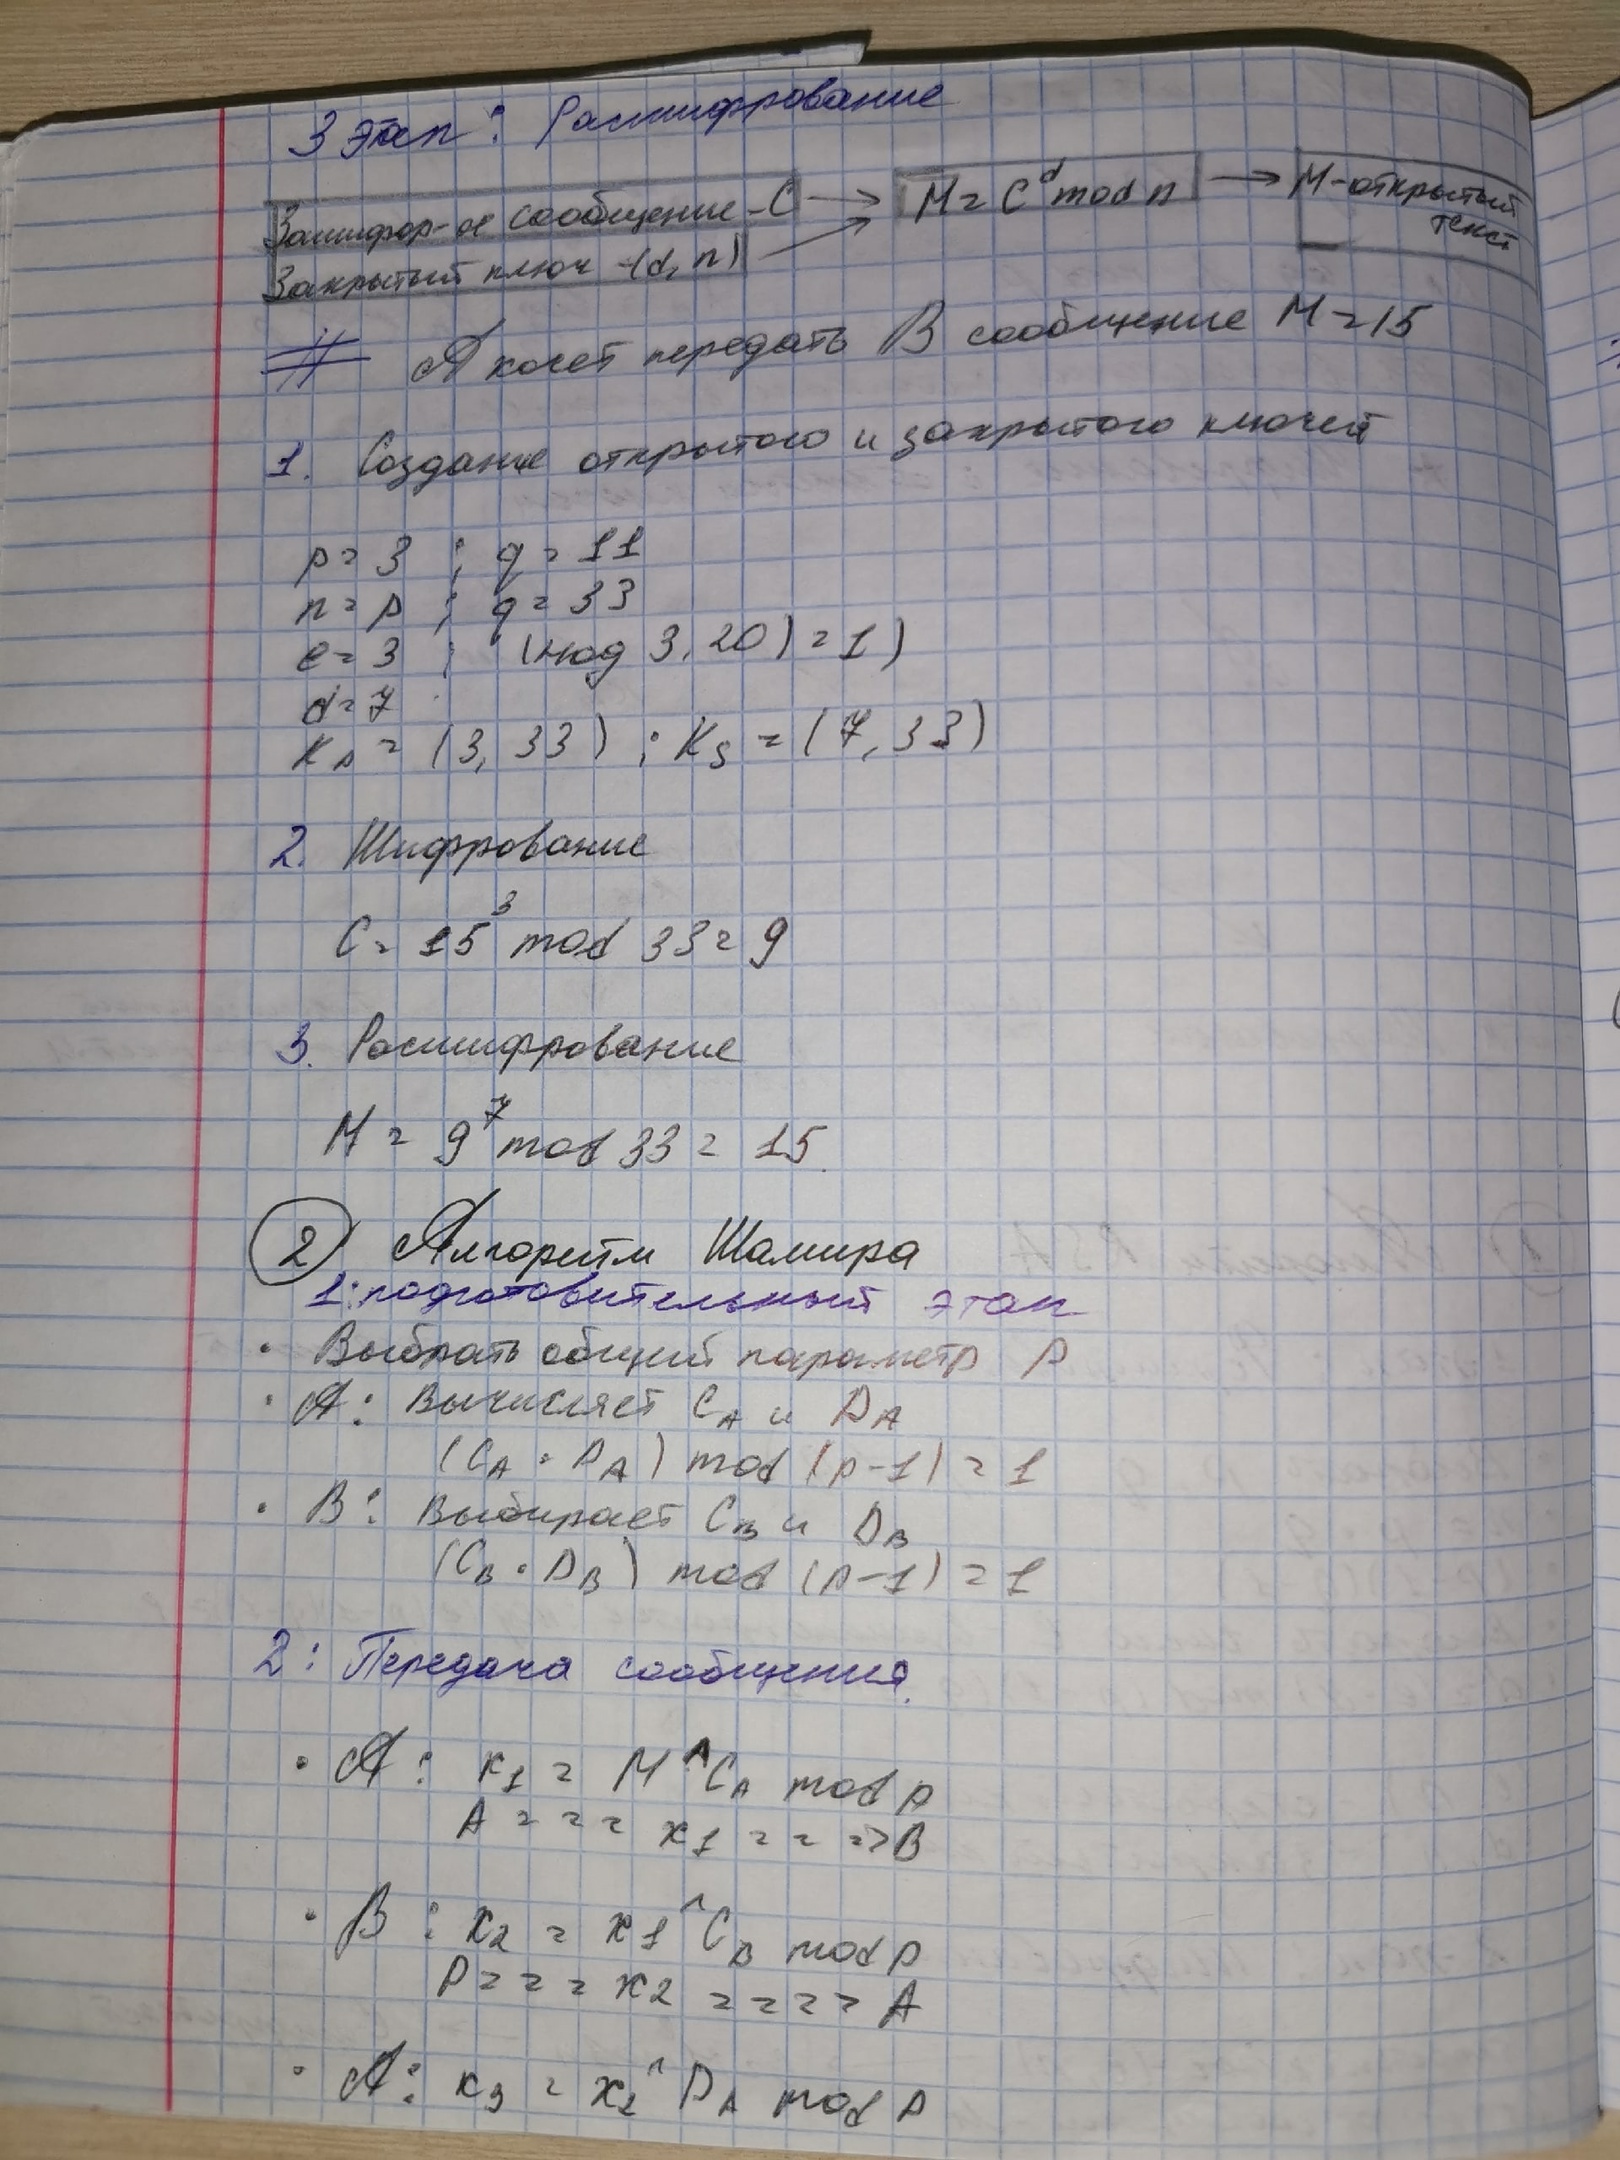 3 этап: Расшифрование
Зашифор-е сообщение - C → M = C^d mod n → M - открытый текст
Закрытый ключ - (d, n)
# A хочет передать B сообщение M = 15
1. Создание открытого и закрытого ключей
p = 3 ; q = 11
n = p ; q = 33
e = 3 ; (нод 3, 20) = 1)
d = 7
Kp = (3, 33) ; Ks = (7, 33)
2. Шифрование
C = 15^3 mod 33 = 9
3. Расшифрование
M = 9^7 mod 33 = 15
2 Алгоритм Шамира
1: подготовительный этап
• Выбрать общий параметр p
• A: Вычисляет C_A и D_A
(C_A · D_A) mod (p-1) = 1
• B: Выбирает C_B и D_B
(C_B · D_B) mod (p-1) = 1
2: Передача сообщения.
• A: x1 = M ^ C_A mod p
A = = = x1 = = => B
• B: x2 = x1 ^ C_B mod p
P = = = x2 = = = = A
• A: x3 = x2 ^ D_A mod p